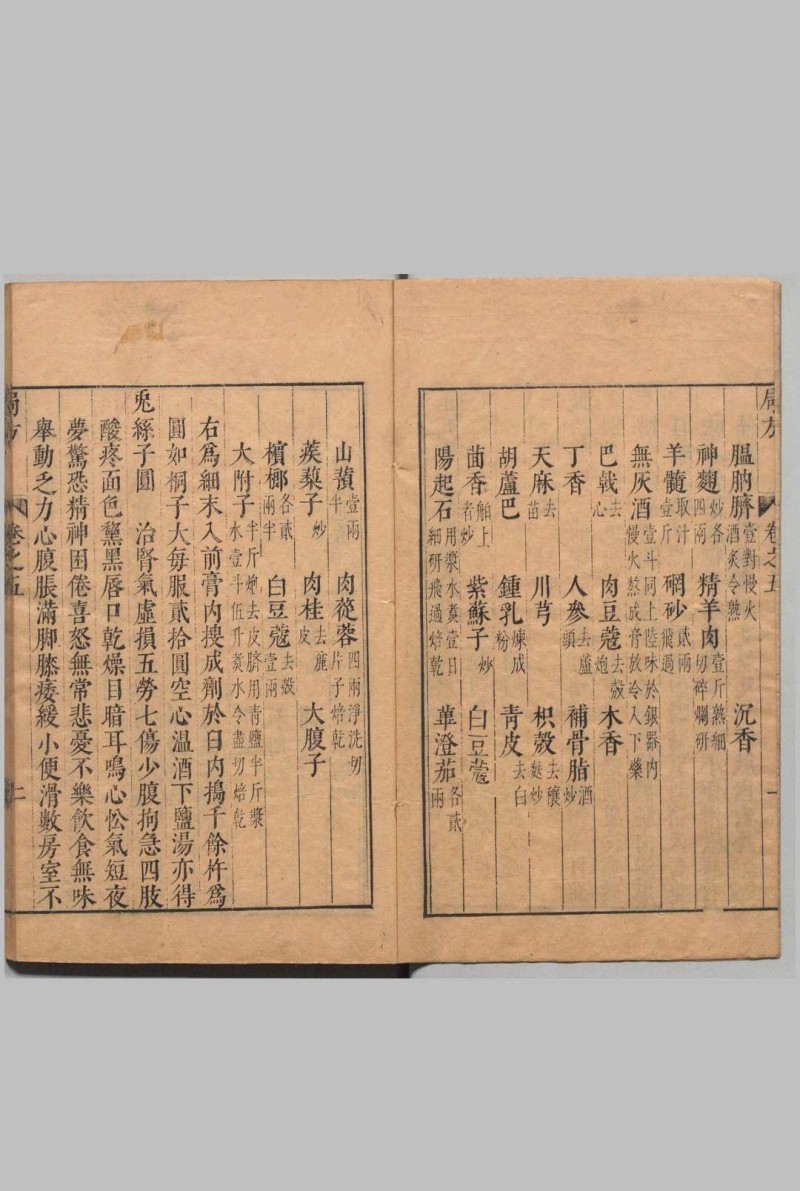 局方 卷之五 一
膃肭臍壹對慢火酒炙令熟 沉香
神麯炒各四兩 精羊肉壹斤熟細切碎爛研
羊髓取汁壹斤 硇砂貳兩飛過
無灰酒壹斗同上陸味於銀器內慢火熬成膏放冷入下藥
巴戟去心 肉豆蔻去殼炮 木香
丁香 人參去蘆頭 補骨脂酒炒
天麻去苗 川芎 枳殼去穰麩炒
胡蘆巴 鍾乳煉成粉 青皮去白
茴香舶上者炒 紫蘇子炒 白豆蔻
陽起石用漿水煮壹日細研飛過焙乾 蓽澄茄各貳兩
山蕷壹兩半 肉蓯蓉四兩淨洗切片子焙乾
蒺蔾子炒 肉桂去麄皮 大腹子
檳榔各貳兩半 白豆蔻去殼壹兩
大附子半斤炮去皮臍用青鹽半斤漿水壹斗伍升煮水令盡切焙乾
右爲細末入前膏內搜成劑於臼內搗千餘杵爲
圓如桐子大每服貳拾圓空心温酒下鹽湯亦得
兎絲子圓 治腎氣虛損五勞七傷少腹拘急四肢
酸疼面色黧黑唇口乾燥目暗耳鳴心忪氣短夜
夢驚恐精神困倦喜怒無常悲憂不樂飲食無味
舉動乏力心腹脹滿脚膝痿緩小便滑數房室不
局方 卷之五 二